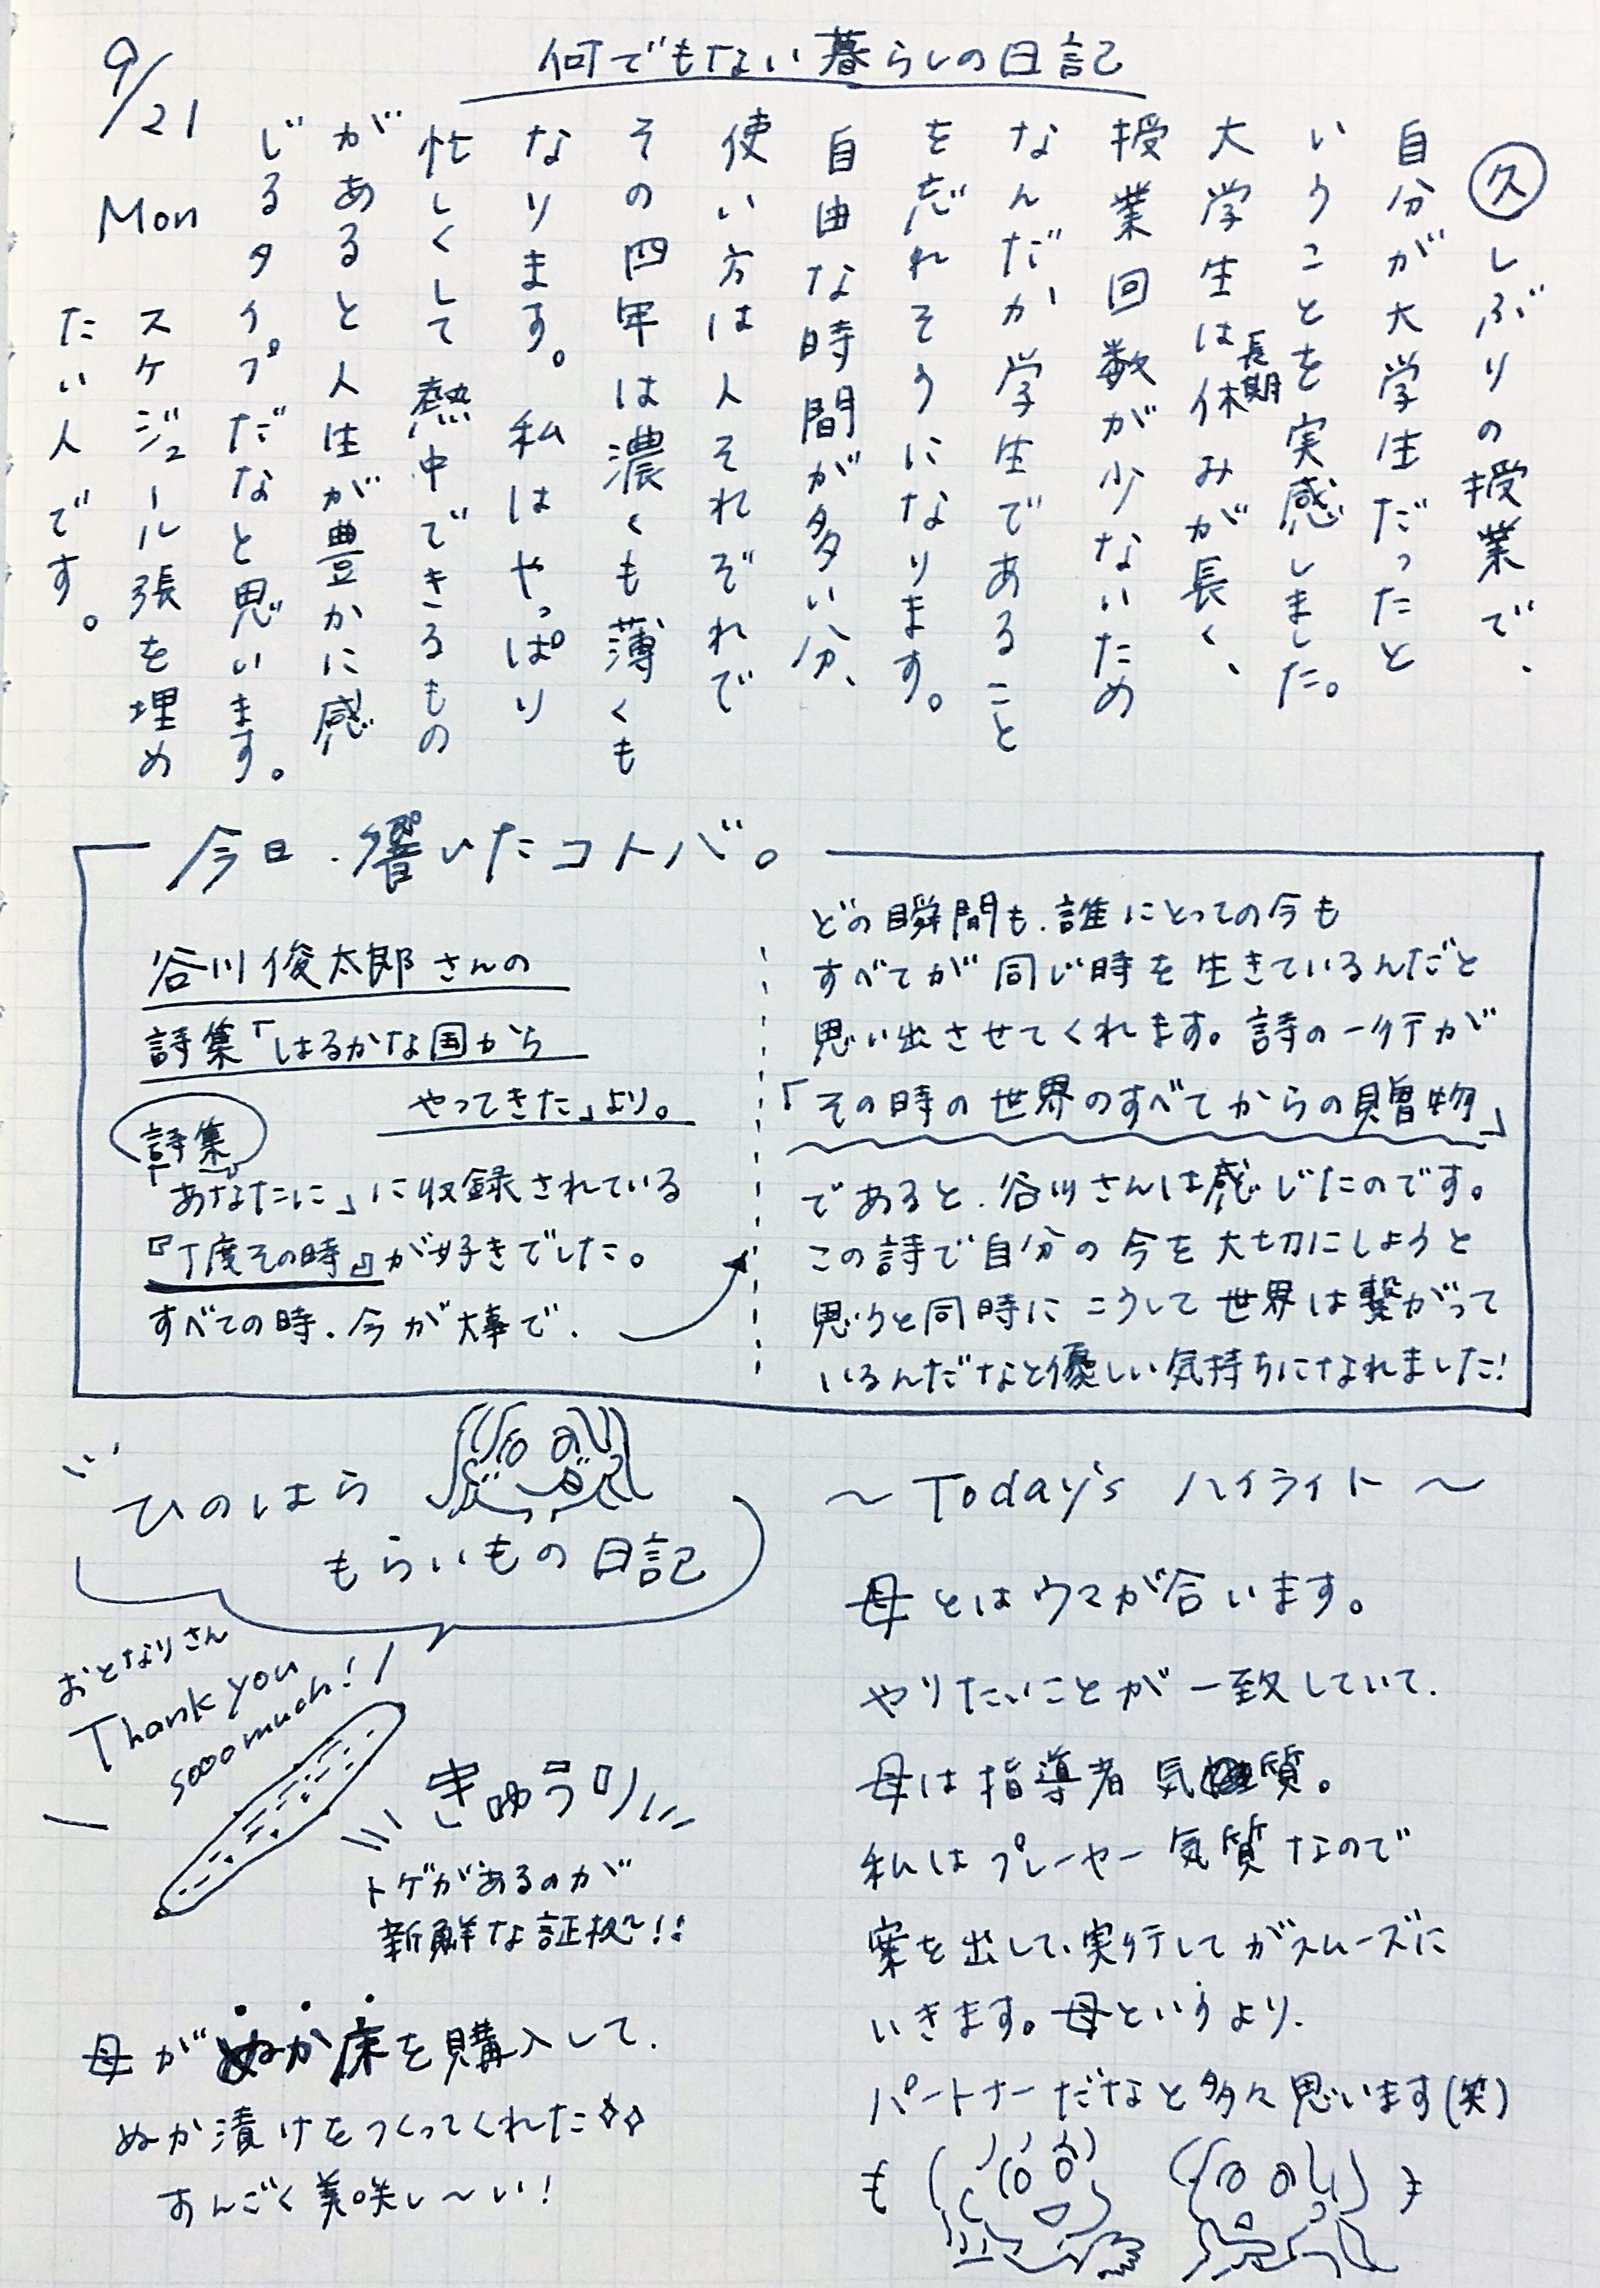 9/21
Mon
何でもない暮らしの日記
久しぶりの授業で、
自分が大学生だったと
いうことを実感しました。
大学生は長期休みが長く、
授業回数が少ないため
なんだか学生であること
を忘れそうになります。
自由な時間が多い分、
使い方は人それぞれで
その四年は濃くも薄くも
なります。私はやっぱり
忙しくして熱中できるもの
があると人生が豊かに感
じるタイプだなと思います。
スケジュール張を埋め
たい人です。
今日、響いたコトバ。
谷川俊太郎さんの
詩集「はるかな国から
やってきた」より。
詩集
「あなたに」に収録されている
『丁度その時』が好きでした。
すべての時、今が大事で、
どの瞬間も、誰にとっての今も
すべてが同じ時を生きているんだと
思い出させてくれます。詩の一行が
「その時の世界のすべてからの贈物」
であると、谷川さんは感じたのです。
この詩で自分の今を大切にしようと
思うと同時にこうして世界は繋がって
いるんだなと優しい気持ちになれました!
ひのはら
もらいもの日記
おとなりさん
Thank you
sooo much!
きゅうり
トゲがあるのが
新鮮な証拠!!
母がぬか床を購入して、
ぬか漬けをつくってくれた
すんごく美味し〜い!
〜Today's ハイライト〜
母とはウマが合います。
やりたいことが一致していて、
母は指導者気質。
私はプレーヤー気質なので
案を出して、実行してがスムーズに
いきます。母というより、
パートナーだなと多々思います(笑)